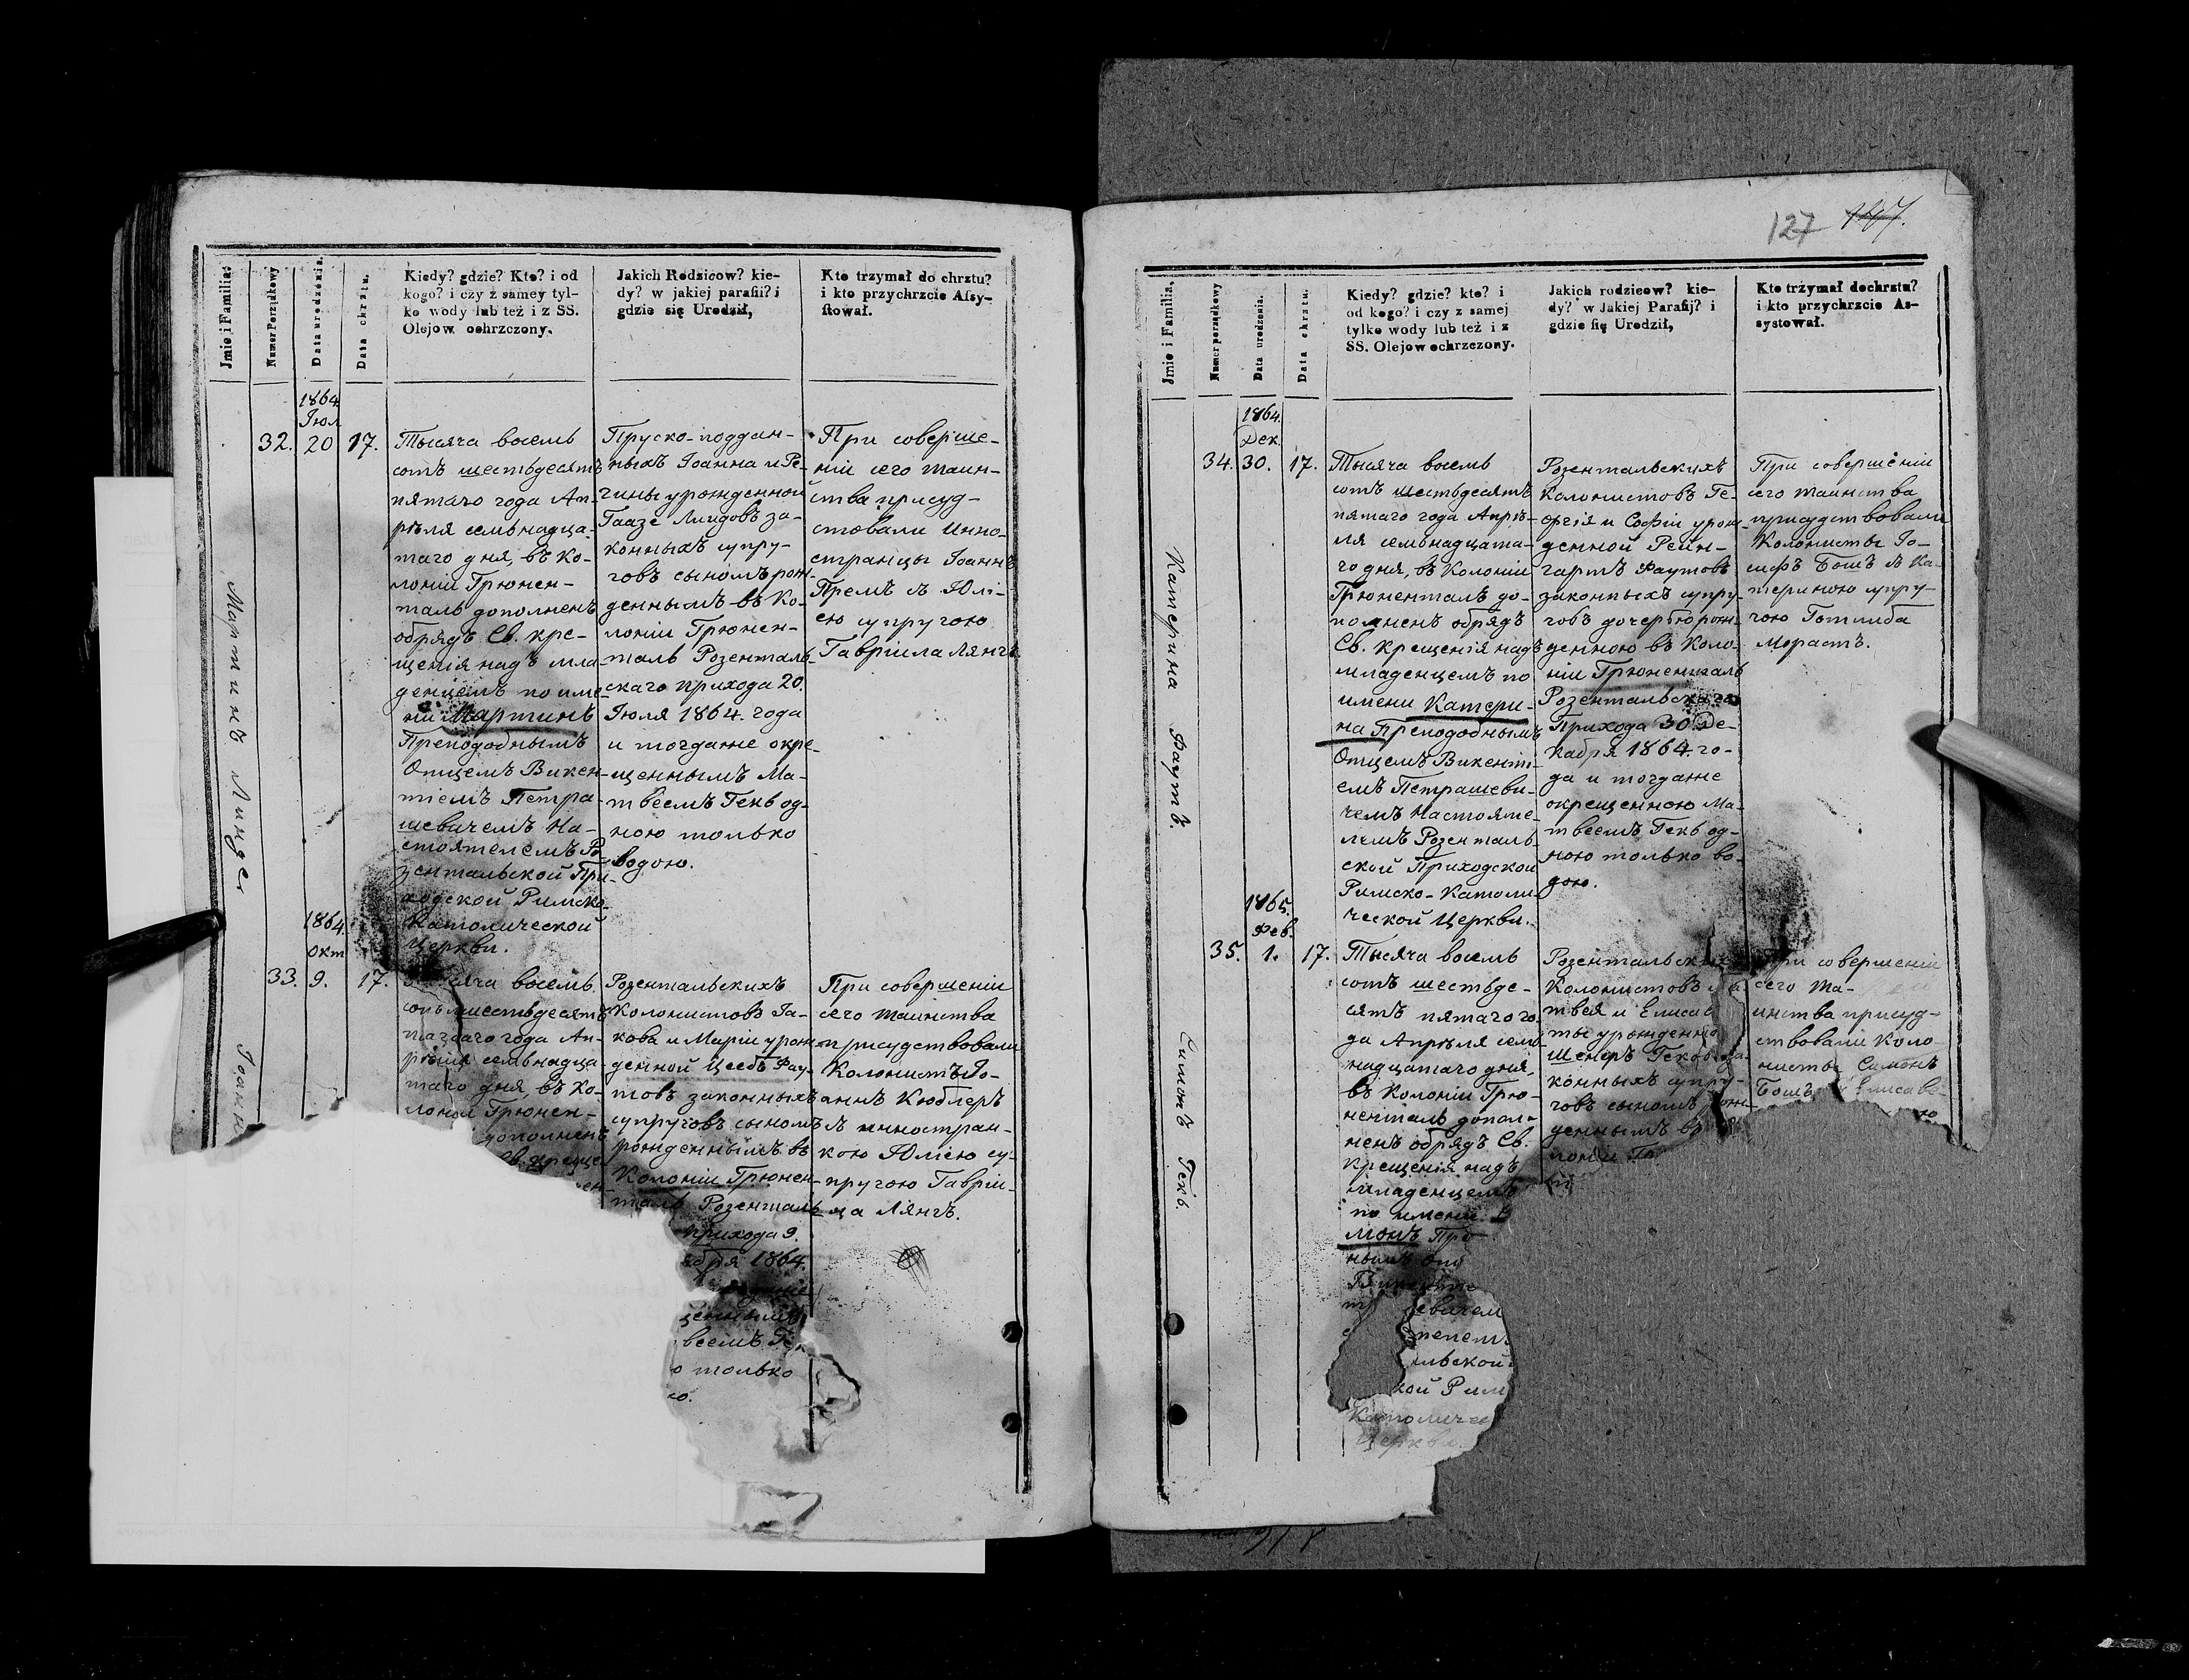 Jmie i Familia.
Numer Porządkowy
Data urodzenia.
Data chrztu.
Kiedy? gdzie? Kto? i od
kogo? i czy z samey tyl-
ko wody lub też i z SS.
Olejow ochrzczony.
Jakich Rodzicow? kie-
dy? w jakiej parafii? i
gdzie się Urodził,
Kto trzymał do chrztu?
i kto przychrzcie Assy-
stował.
Мартинъ Линде
1864
Іюл
32. 20 17.
Тысяча восемь
сотъ шестьдесятъ
пятаго года Ап-
рѣля семьнадца-
таго дня, въ Ко-
лоніи Грюнен-
таль дополненъ
обрядъ Св. кре-
щенія надъ мла
денцемъ по име-
ни Мартинъ
Преподобнымъ
Отцемъ Викен-
тіемъ Петра-
шевичемъ На-
стоятелемъ Ро
зентальской При-
ходской Римско-
Католической
Церкви.
Пруско-поддан-
ныхъ Іоанна и Ре-
гины урожденной
Гаазе Линдовъ за-
конныхъ супру-
говъ сыномъ рож-
деннымъ въ Ко-
лоніи Грюнен-
таль Розенталь-
скаго прихода 20.
Іюля 1864. года
и тогдаже окре-
щеннымъ Ма-
твеемъ Гекъ од-
ною только
водою.
При соверше-
ніи сего таин-
ства присуд-
ствовали Инно-
странцы Іоаннъ
Премъ съ Юлі-
ею супругою
Гавріила Лянгъ.
Іоанн
1864.
окт
33. 9. 17.
восемь
сотъ шестьдесятъ
года Ап-
рѣля семьнадца
таго дня, въ Ко-
лоніи Грюнен-
дополненъ
Св. креще
Розентальскихъ
Колонистовъ Іа-
кова и Маріи урож-
денной Цеебъ Фау-
товъ законныхъ
супруговъ сыномъ
рожденнымъ въ
Колоніи Грюнен-
таль Розенталь
прихода 9.
ября 1864.
щеннымъ
веемъ Гек
о только
ю.
При совершеніи
сего таинства
присудствовали
Колонистъ Іо-
аннъ Кюблеръ
съ инностран-
кою Юліею су-
пругою Гавріи-
ла Лянгъ.
127 147.
Jmie i Familia.
Numer porządkowy
Data urodzenia.
Data chrztu.
Kiedy? gdzie? kto? i
od kogo? i czy z samej
tylko wody lub też i z
SS. Olejow ochrzczony.
Jakich rodzicow? kie-
dy? w Jakiej Parafij? i
gdzie się Urodził,
Kto trżymał dochrztu?
i kto przychrzcie As-
systował.
Катерина Фаутъ.
1864.
Дек.
34. 30. 17.
Тысяча восемь
сотъ шестьдесятъ
пятаго года Апрѣ-
ля семьнадцата-
го дня, въ Колоніи
Грюненталь до-
полненъ обрядъ
Св. Крещенія надъ
младенцемъ по
имени Катери-
на Преподобнымъ
Отцемъ Викенті-
емъ Петрашеви-
чемъ Настояте-
лемъ Розенталь-
ской Приходской
Римско-Католи-
ческой Церкви.
Розентальскихъ
Колонистовъ Ге-
оргія и Софіи урож-
денной Рейн-
гартъ Фаутовъ
законныхъ супру-
говъ дочерью рож-
денною въ Коло-
ніи Грюненталь
Розентальскаго
Прихода 30 Де-
кабря 1864. го-
да и тогдаже
окрещенною Ма-
твеемъ Гекъ од-
ною только во-
дою.
При совершеніи
сего таинства
присудствовали
Колонисты Іо-
сифъ Бошъ съ Ка-
териною супру-
гою Готлиба
Морастъ.
Симонъ Гекъ.
1865.
Фев.
35. 1. 17.
Тысяча восемь
сотъ шестьде-
сятъ пятаго го
да Апрѣля семь
надцатаго дня,
въ Колоніи Грю-
ненталь допол-
ненъ обрядъ Св.
Крещенія надъ
младенцемъ
по имени
монъ Пре
нымъ Отц
Викенті
евичем
ьской
кой Рим
Католичес
Церкви.
Розентальских
Колонистовъ
твея и Елисав
ты урожденно
Шенеръ Гековъ за-
конныхъ супру-
говъ сыномъ рож-
деннымъ въ
лоніи Гр
При совершеніи
сего Та-
инства присуд-
ствовали Коло-
нисты Симонъ
Бошъ Елисаве